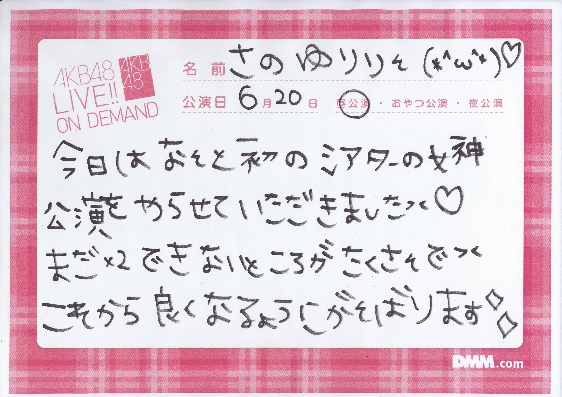 AKB48
LIVE!!
ON DEMAND
AKB
48
名前 さのゆりりそ(*^ω^*)♡
公演日 6月20日 昼公演・おやつ公演・夜公演
今日はなそと初のシアターの女神
公演をやらせていただきましたっ♡
まだ×2できないところがたくさそでっ
これから良くなるようにがそばります
DMM.com